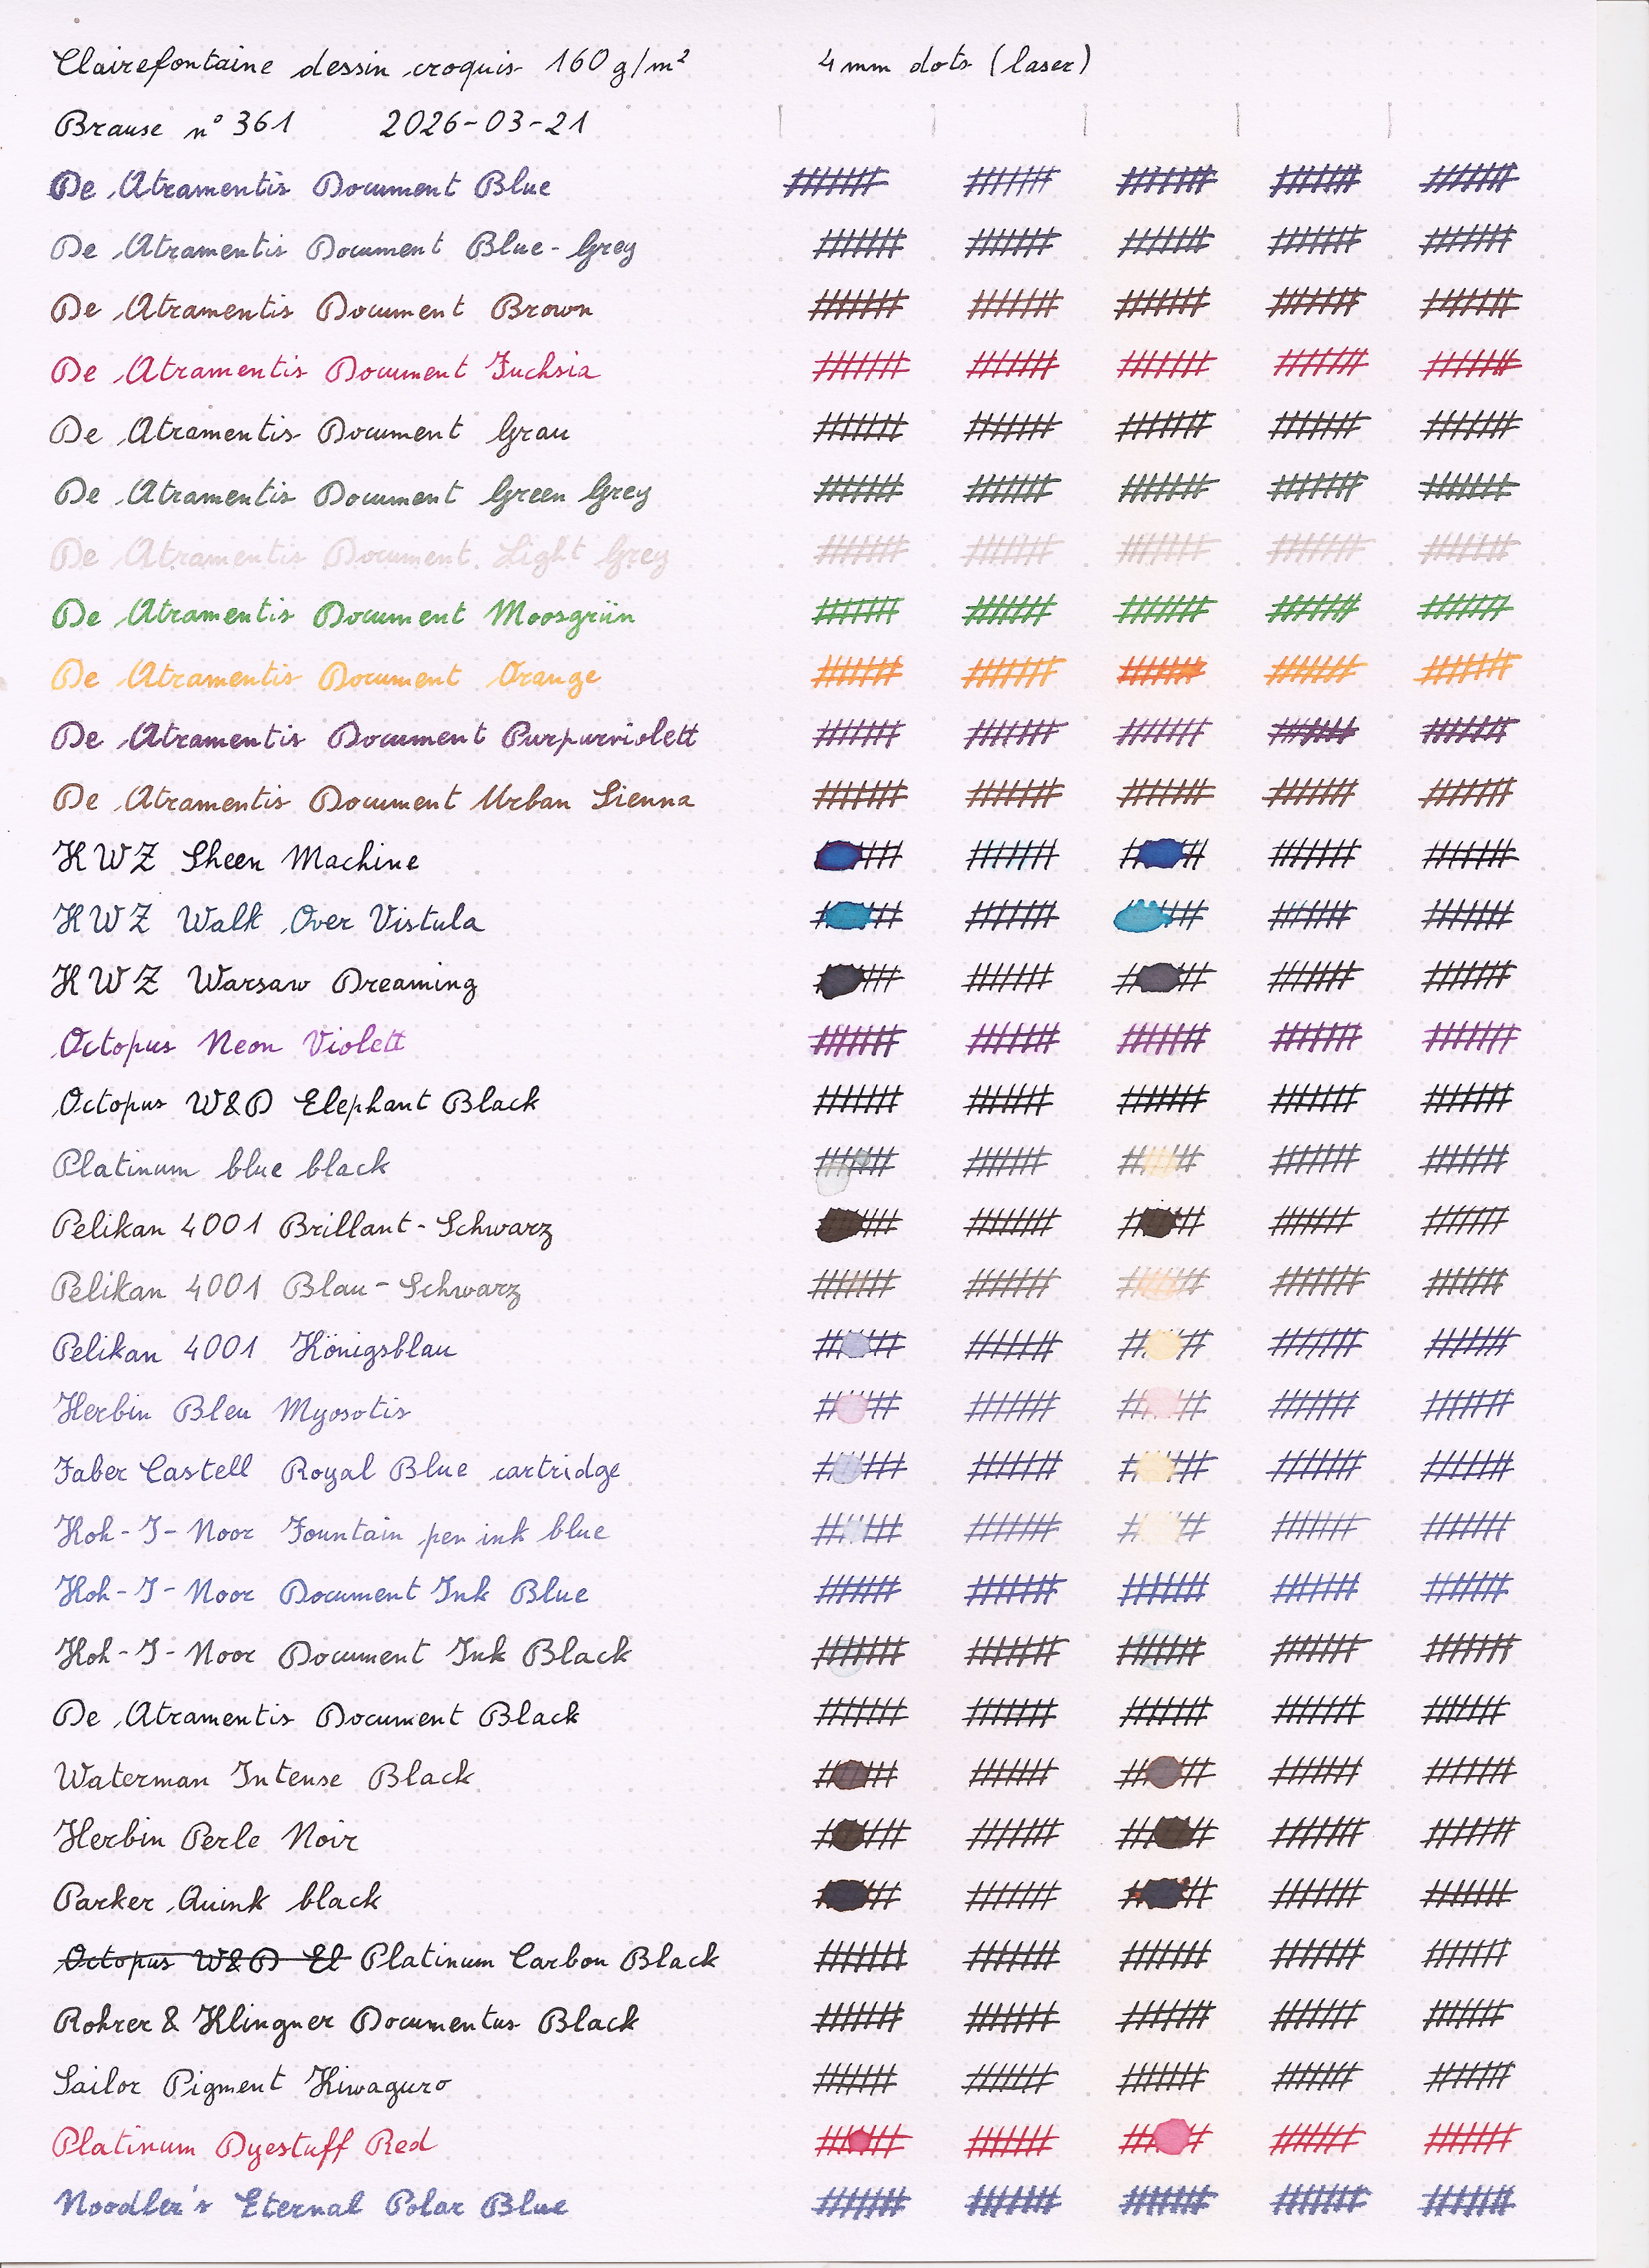 Clairefontaine dessin croquis 160 g/m² 4 mm dots (laser)
Brause n° 361 2026-03-21
De Atramentis Document Blue
De Atramentis Document Blue-Grey
De Atramentis Document Brown
De Atramentis Document Fuchsia
De Atramentis Document Grau
De Atramentis Document Green Grey
De Atramentis Document Light Grey
De Atramentis Document Moosgrün
De Atramentis Document Orange
De Atramentis Document Purpurviolett
De Atramentis Document Urban Sienna
KWZ Sheen Machine
KWZ Walk Over Vistula
KWZ Warsaw Dreaming
Octopus Neon Violett
Octopus W&D Elephant Black
Platinum blue black
Pelikan 4001 Brillant-Schwarz
Pelikan 4001 Blau-Schwarz
Pelikan 4001 Königsblau
Herbin Bleu Myosotis
Faber Castell Royal Blue cartridge
Koh-I-Noor Fountain pen ink blue
Koh-I-Noor Document Ink Blue
Koh-I-Noor Document Ink Black
De Atramentis Document Black
Waterman Intense Black
Herbin Perle Noir
Parker Quink black
Octopus W&D El Platinum Carbon Black
Rohrer & Klingner Documentus Black
Sailor Pigment Kiwaguro
Platinum Dyestuff Red
Noodler's Eternal Polar Blue